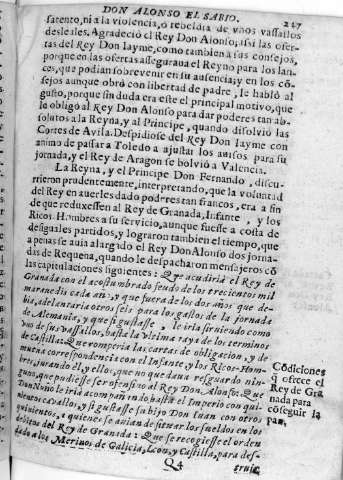 DON ALONSO EL SABIO. 247
sarento, ni a la violencia, ó rebeldia de vnos vassallos
desleales. Agradeciò el Rey Don Alonso, assi las ofer-
tas del Rey Don Iayme, como tambien sus consejos,
porque en las ofertas asseguraua el Reyno para los lan-
ces, que podian sobrevenir en su ausencia, y en los co-
sejos aunque obró con libertad de padre, le habló al
gusto, porque sin duda era este el principal motivo, que
le obligò al Rey Don Alonso para dar poderes tan ab-
solutos a la Reyna, y al Principe, quando disolviò las
Cortes de Avila. Despidiose del Rey Don Iayme con
animo de passar a Toledo a ajustar los auisos para su
jornada, y el Rey de Aragon se bolviò a Valencia.
La Reyna, y el Principe Don Fernando, discu-
rrieron prudentemente, interpretando, que la voluntad
del Rey en averles dado poderes tan francos, era a fin
de que reduxessen al Rey de Granada, Infante, y los
Ricos-Hombres a su servicio, aunque fuesse a costa de
desiguales partidos, y lograron tambien el tiempo, que
a penas se auia alargado el Rey Don Alonso dos jorna-
das de Requena, quando le despacharon mensajeros cõ
las capitulaciones siguientes: Que acudiria el Rey de
Granada con el acostumbrado feudo de los trecientos mil
marauedis cada año; y que fuera de los dos años que de-
bia, adelantaria otros seis para los gastos de la jornada
de Alemania, y que si gustasse, le iria sirviendo como
vno de sus vassallos, hasta la vltima raya de los terminos
de Castilla. Que romperia las cartas de obligacion, y de
buena correspondencia con el Infante, y los Ricos-Hom-
bres, jurando èl, y ellos, que no que dana resguardo nin-
guno, que pudiesse ser ofensivo al Rey Don Alonso. Que
Don Nuño le iria acompañando hasta el Imperio con qui-
nientos cavallos, y si gustasse su hijo Don Iuan con otros
quinientos, a quienes se auian de situar los sueldos en los
debitos del Rey de Granada: Que se recogiesse el orden
dado a los Merinos de Galicia, Leon, y Castilla, para des-
Cõdiciones
q ofrece el
Rey de Gra
nada para
cõseguir la
paz.
Q4
truir